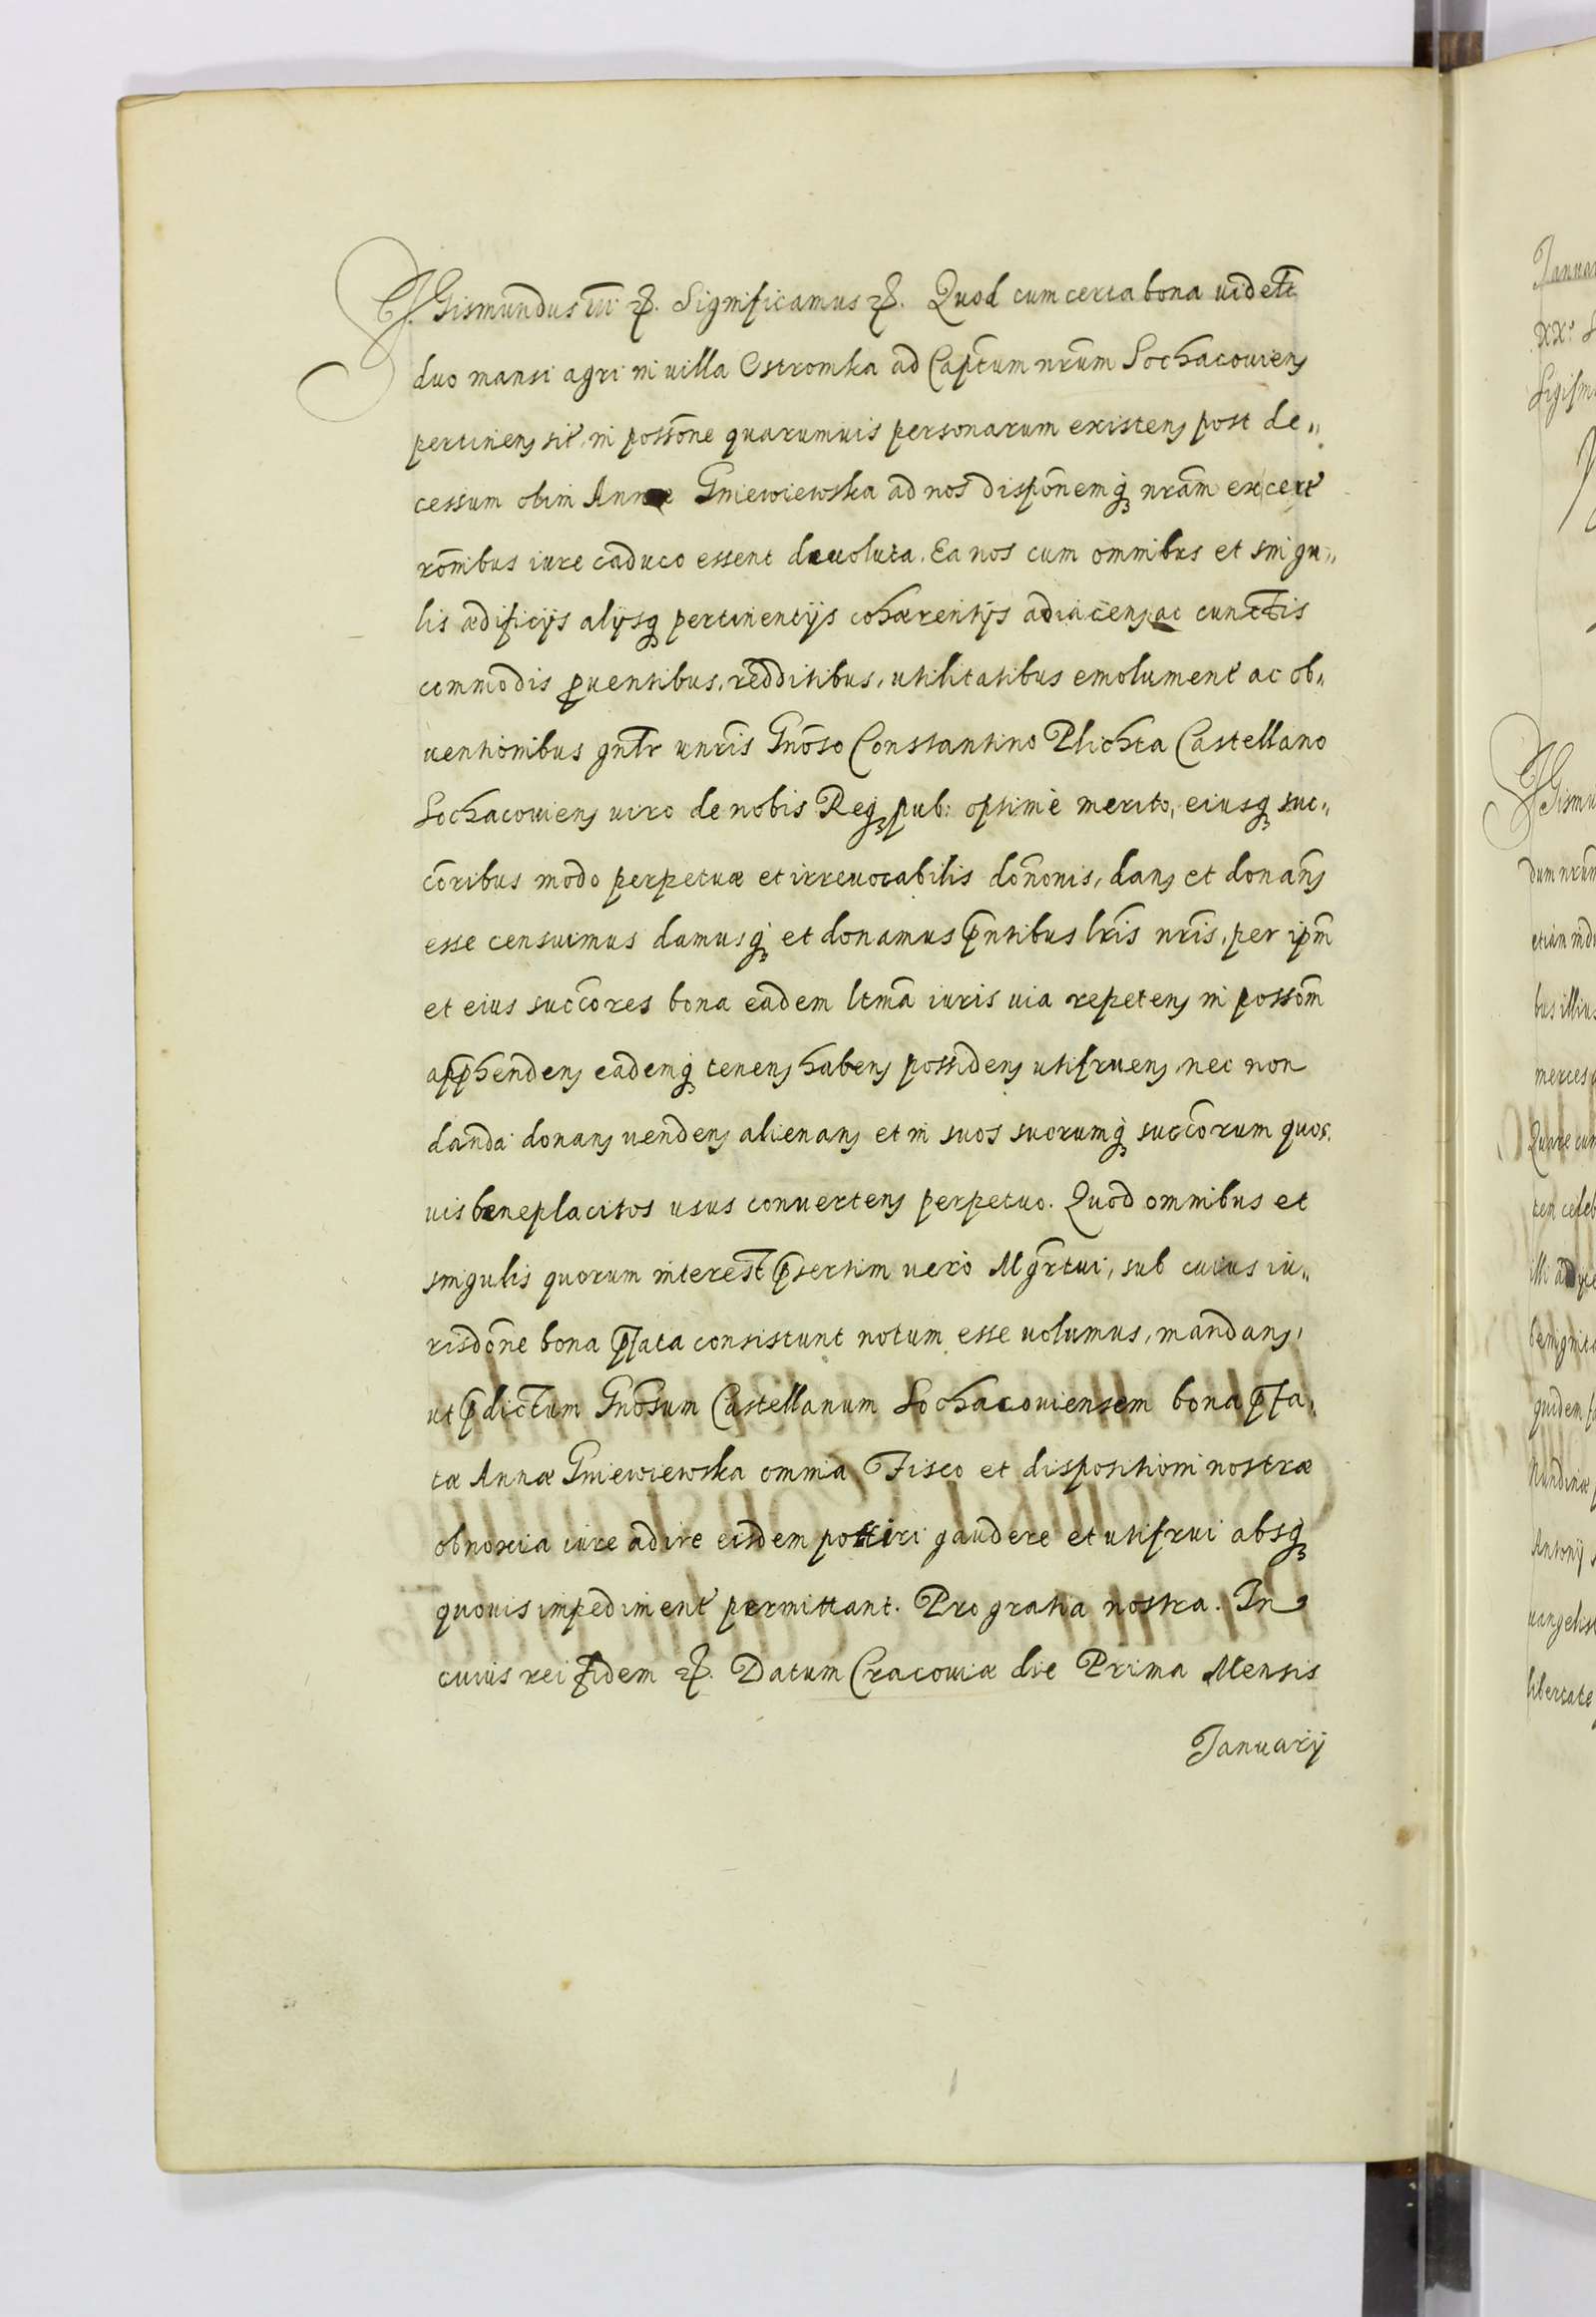 SJGismundus III etc. Significamus etc. Quod cum certa bona videlt
duo mansi agri in villa Ostromka ad Captum nrum Sochacouiens
pertinens sit, in possone quarumuis personarum existens post de„
cessum olim Annæ Gniewiewska ad nos disponemq nram ex cert
ronibus iure caduco essent deuoluta. Ea nos cum omnibus et singu„
lis ædificijs alijsq pertinentijs cohærentijs adiacens ac cunctis
commodis prouentibus, redditibus, utilitatibus emolument ac ob„
uentionibus gnlr unris Gnoso Constantino Plichta Castellano
Sochacouiens uiro de nobis Reqpub: optimè merito, eiusq suc„
coribus modo perpetuæ et irreuocabilis dononis, dans et donans
esse censuimus damusq et donamus pntibus lris nris, per ipm
et eius succores bona eadem ltma iuris uia repetens in possom
apphendens eademq tenens habens possidens utifruens, nec non
danda donans vendens alienans et in suos suorumq succorum quos„
uis beneplacitos usus convertens perpetuo. Quod omnibus et
singulis quorum interest psertim vero Mgrtui, sub cuius iu„
risdone bona pfata consistunt notum esse uolumus, mandans,
ut pdictum Gnosum Castellanum Sochacouiensem bona pfa„
tæ Annæ Gniewiewska omnia Fisco et dispositioni nostræ
obnoxia iure adire eisdem potiri gaudere et utifrui absq
quouis impediment permittant. Pro gratia nostra. In
cuius rei fidem etc. Datum Cracouiæ die Prima Mensis
Januarij